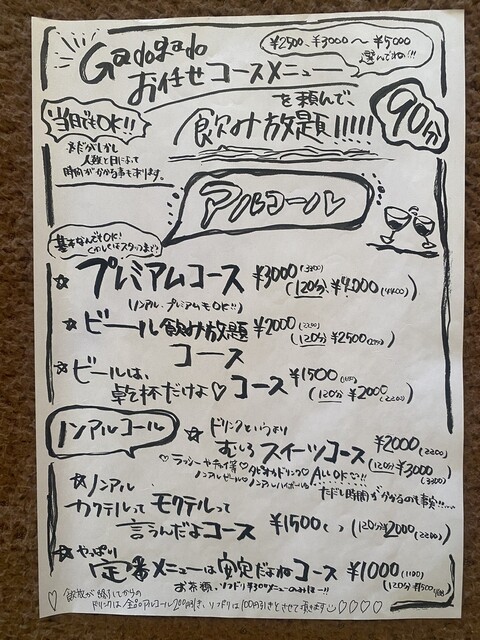 Gadogado
¥2500、¥3000～¥5000
選んでね!!!
お任せコースメニュー
を頼んで、
飲み放題!!!!!
90分
当日でもOK!!
※だがしかし
人数と日によって
時間がかかる事もあります。
アルコール
基本なんでもOK!
くわしくはスタッフまで!
☆プレミアムコース ¥3000(3300)
(120分 ¥4,000(4400)
(ノンアル、プレミアムもOK!!)
☆ビール飲み放題 ¥2000(2200)
コース (120分 ¥2500
☆ビールは、
乾杯だけよ♡コース ¥1500
(120分 ¥2000(2200)
ノンアルコール
☆ドリンクというより
むしろスイーツコース ¥2000(2200)
(120分 ¥3000(3300)
♡ラッシーやチャイ等♡タピオカドリンク♡ALL OK
ノンアルビール♡ノンアルハイボール
ただし時間がかかるのも事実
☆ノンアル
カクテルってモクテルって
言うんだよコース ¥1500 (120分 ¥2000(2200)
☆やっぱり
定番メニューは安定だよねコース ¥1000(1100)
(120分 ¥1500
お茶類、ソフドリ¥300メニューのみは
♡飲放が終了してからの
ドリンクは全品アルコール200円引き、ソフドリは100円引きとさせて頂きます♡♡♡♡